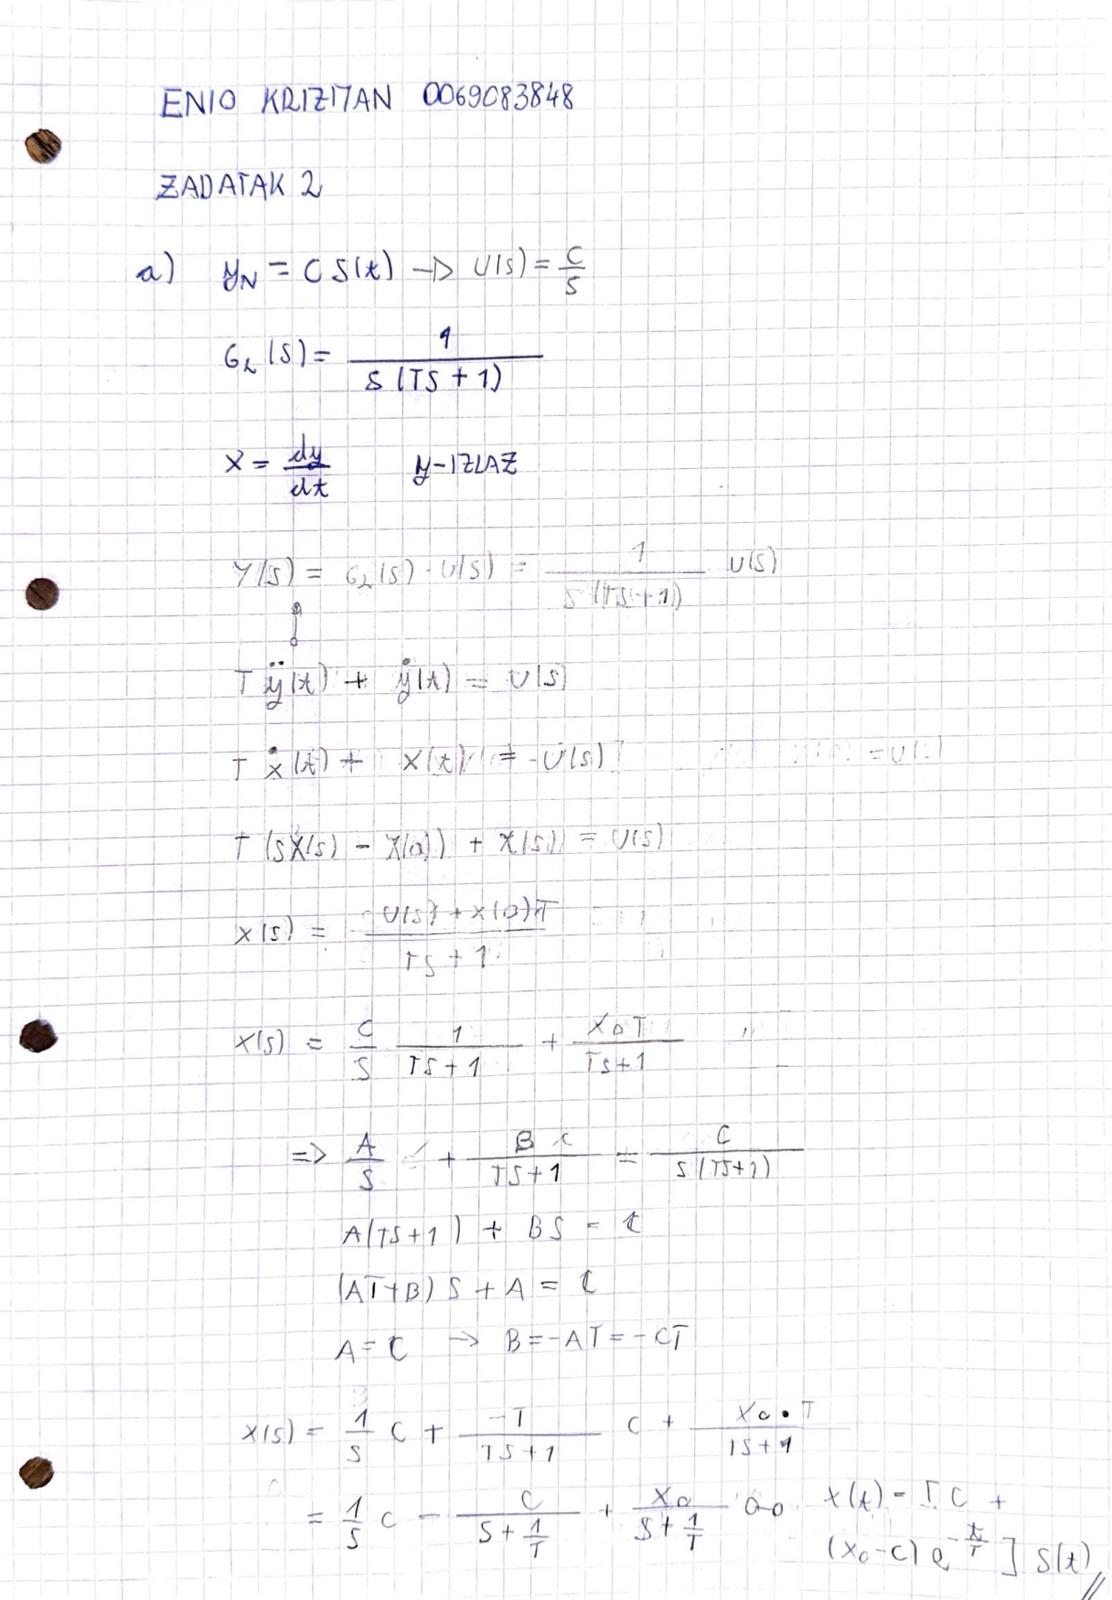 ENIO KRIZMAN 0069083848
ZADATAK 2
a) y_N = C S(t) -> U(s) = C/s
G_2(s) = 1/(s(Ts + 1))
x = dy/dt y - IZLAZ
Y(s) = G_2(s) · U(s) = 1/(s(Ts+1)) U(s)
T ÿ(t) + ẏ(t) = U(s)
T ẋ(t) + x(t) = U(s)
T (sX(s) - X(0)) + X(s) = U(s)
X(s) = (U(s) + x(0)T)/(Ts + 1)
X(s) = C/s 1/(Ts + 1) + x_0 T/(Ts+1)
=> A/s + B/(Ts+1) = C/(s(Ts+1))
A(Ts+1) + Bs = C
(AT+B) s + A = C
A = C -> B = -AT = -CT
X(s) = 1/s C + -T/(Ts+1) C + x_0 · T/(Ts+1)
= 1/s C - C/(s + 1/T) + x_0/(s + 1/T) x(t) = [C +
(x_0 - C) e^{-t/T}] S(t) //